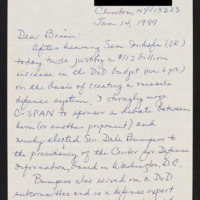 Clinton, NY 13323
Jan 14, 1999
Dear Brian:
After hearing Sen. Inhofe (OK)
today twice justify a $112 billion
increase in the DoD budget (over 6 yrs.)
on the basis of creating a missile
defense system, I strongly urge
C-SPAN to sponsor a debate between
him (or another proponent) and
newly elected Sen. Dale Bumpers to
the presidency of the Center for Defense
Information, based in Washington, D.C.
Bumpers also served on a DoD
subcommittee and is a defense expert